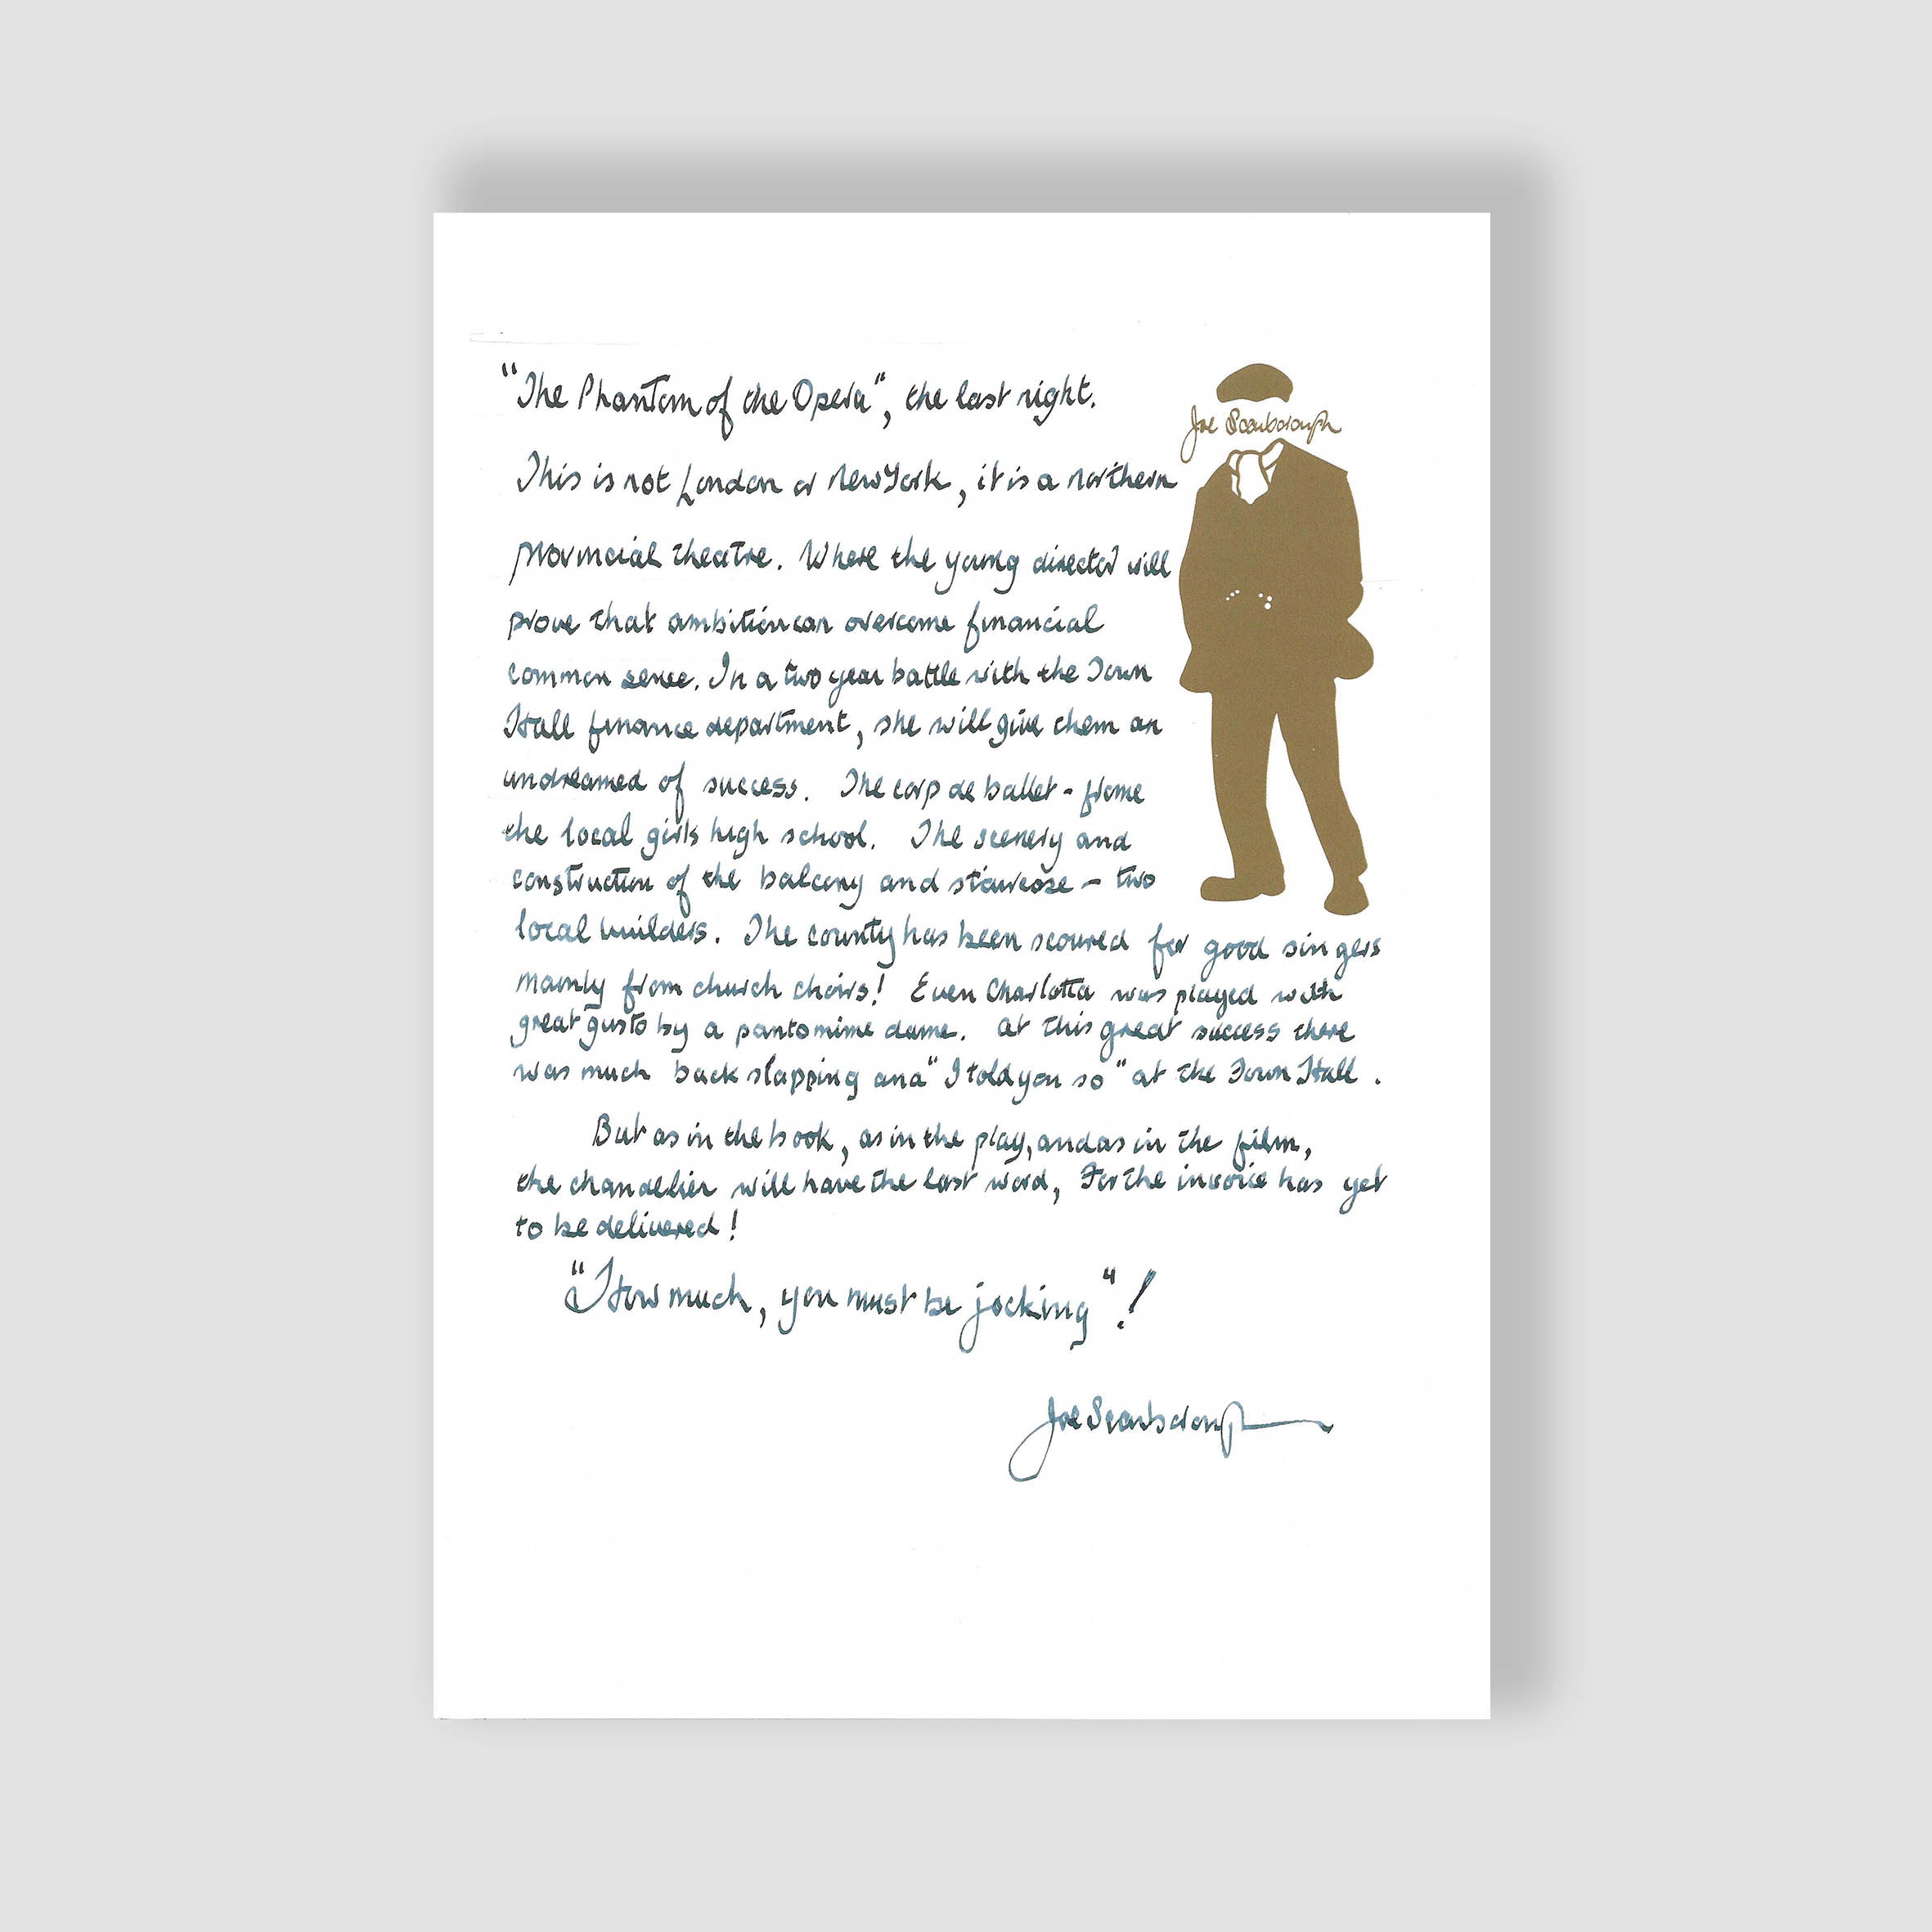 "The Phantom of the Opera", the last night.
Joe Scarborough
This is not London or New York, it is a northern
provincial theatre. Where the young director will
prove that ambition can overcome financial
common sense. In a two year battle with the Town
Hall finance department, she will give them an
undreamed of success. The corp de ballet - frome
the local girls high school. The scenery and
construction of the balcony and staircase - two
local builders. The county has been scoured for good singers
mainly from church choirs! Even Charlotta was played with
great gusto by a pantomime dame. At this great success there
was much back slapping and "I told you so" at the Town Hall.
But as in the book, as in the play, and as in the film,
the chandelier will have the last word, For the invoice has yet
to be delivered!
"How much, you must be jocking"!
Joe Scarborough